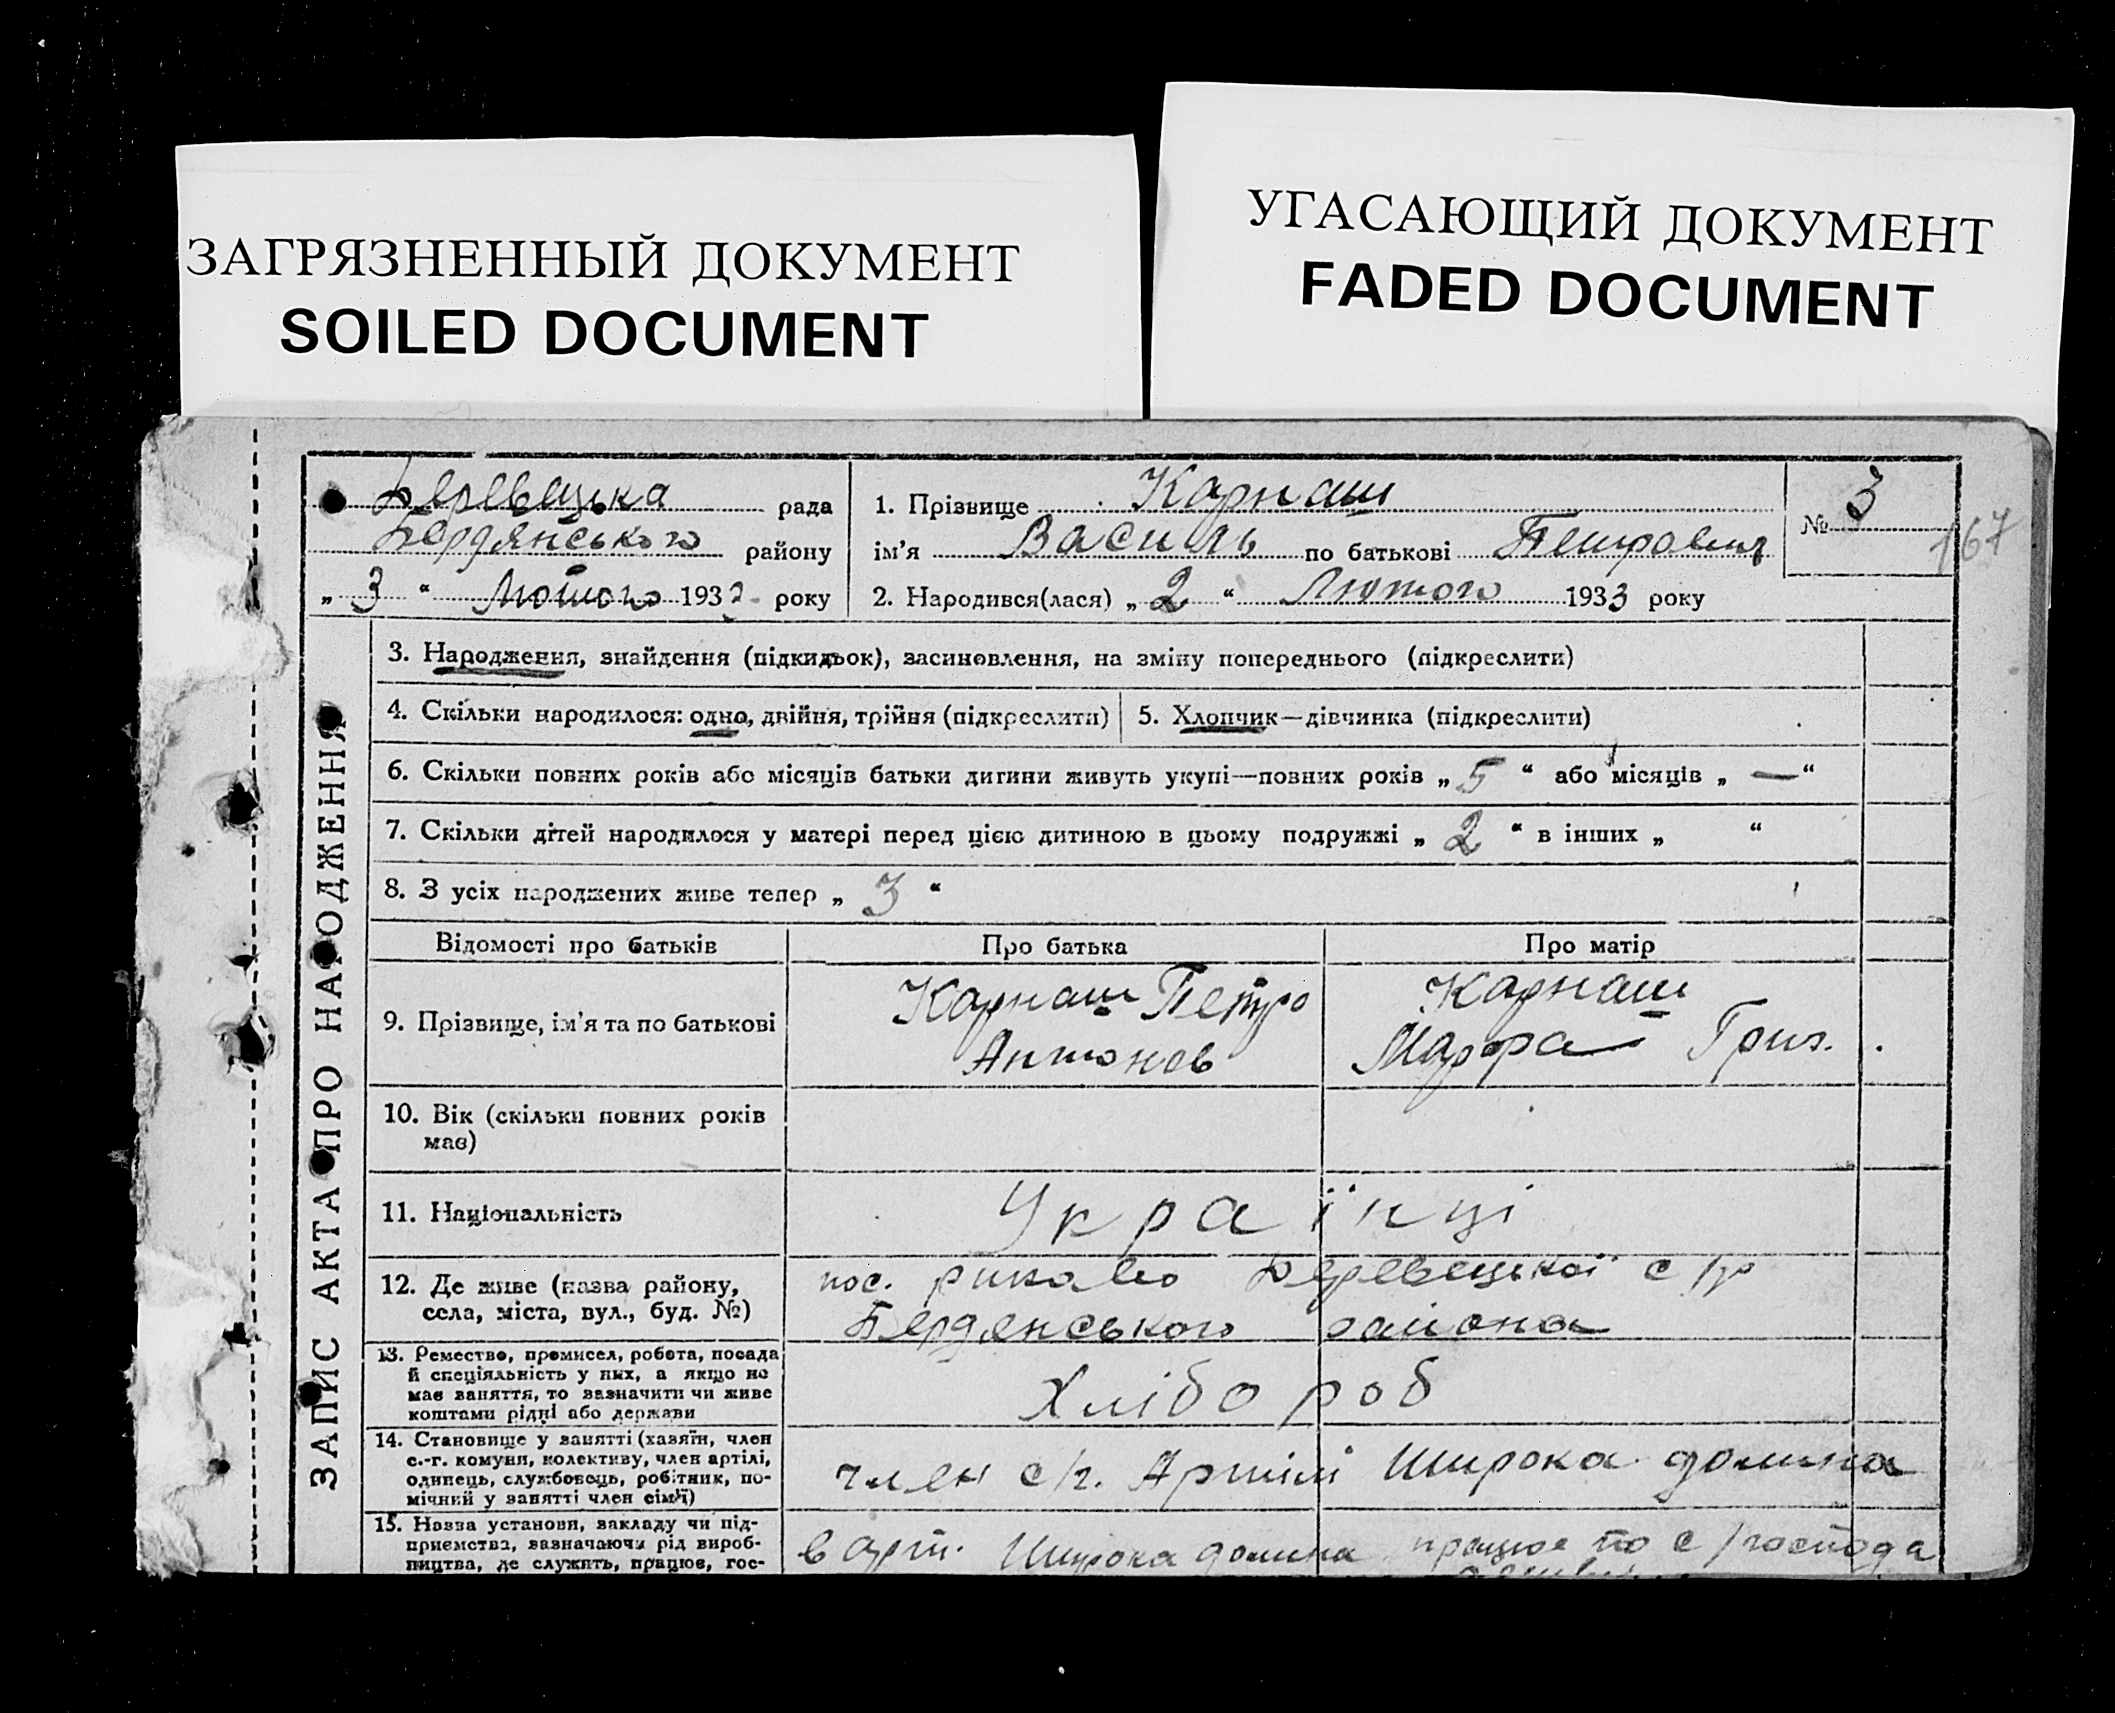 ЗАГРЯЗНЕННЫЙ ДОКУМЕНТ
SOILED DOCUMENT
УГАСАЮЩИЙ ДОКУМЕНТ
FADED DOCUMENT
Деревецька рада
Бердянського району
„ 3 “ Лютого 1933 року
1. Прізвище Карнаш
ім’я Василь по батькові Петрович
2. Народився(лася) „ 2 “ Лютого 1933 року
№ 3
167
ЗАПИС АКТА ПРО НАРОДЖЕННЯ
3. Народження, знайдення (підкидьок), засиновлення, на зміну попереднього (підкреслити)
4. Скільки народилося: одно, двійня, трійня (підкреслити)
5. Хлопчик—дівчинка (підкреслити)
6. Скільки повних років або місяців батьки дитини живуть укупі—повних років „ 5 “ або місяців „ — “
7. Скільки дітей народилося у матері перед цією дитиною в цьому подружжі „ 2 “ в інших „ “
8. З усіх народжених живе тепер „ 3 “
Відомості про батьків
Про батька
Про матір
9. Прізвище, ім’я та по батькові
Карнаш Петро
Антонов
Карнаш
Марфа Григ.
10. Вік (скільки повних років
має)
11. Національність
Українці
12. Де живе (назва району,
села, міста, вул., буд. №)
пос. Деревецької с/р
Бердянського района
13. Ремество, промисел, робота, посада
й спеціяльність у них, а якщо не
має заняття, то зазначити чи живе
коштами рідні або держави
Хлібороб
14. Становище у занятті (хазяїн, член
с.-г. комуни, колективу, член артілі,
одинець, службовець, робітник, по-
мічний у занятті член сім’ї)
член с/г. Артілі Широка долина
15. Назва установи, закладу чи під-
приємства, зазначаючи рід вироб-
ництва, де служить, працює, гос-
в арт. Широка долина працює по с/господа